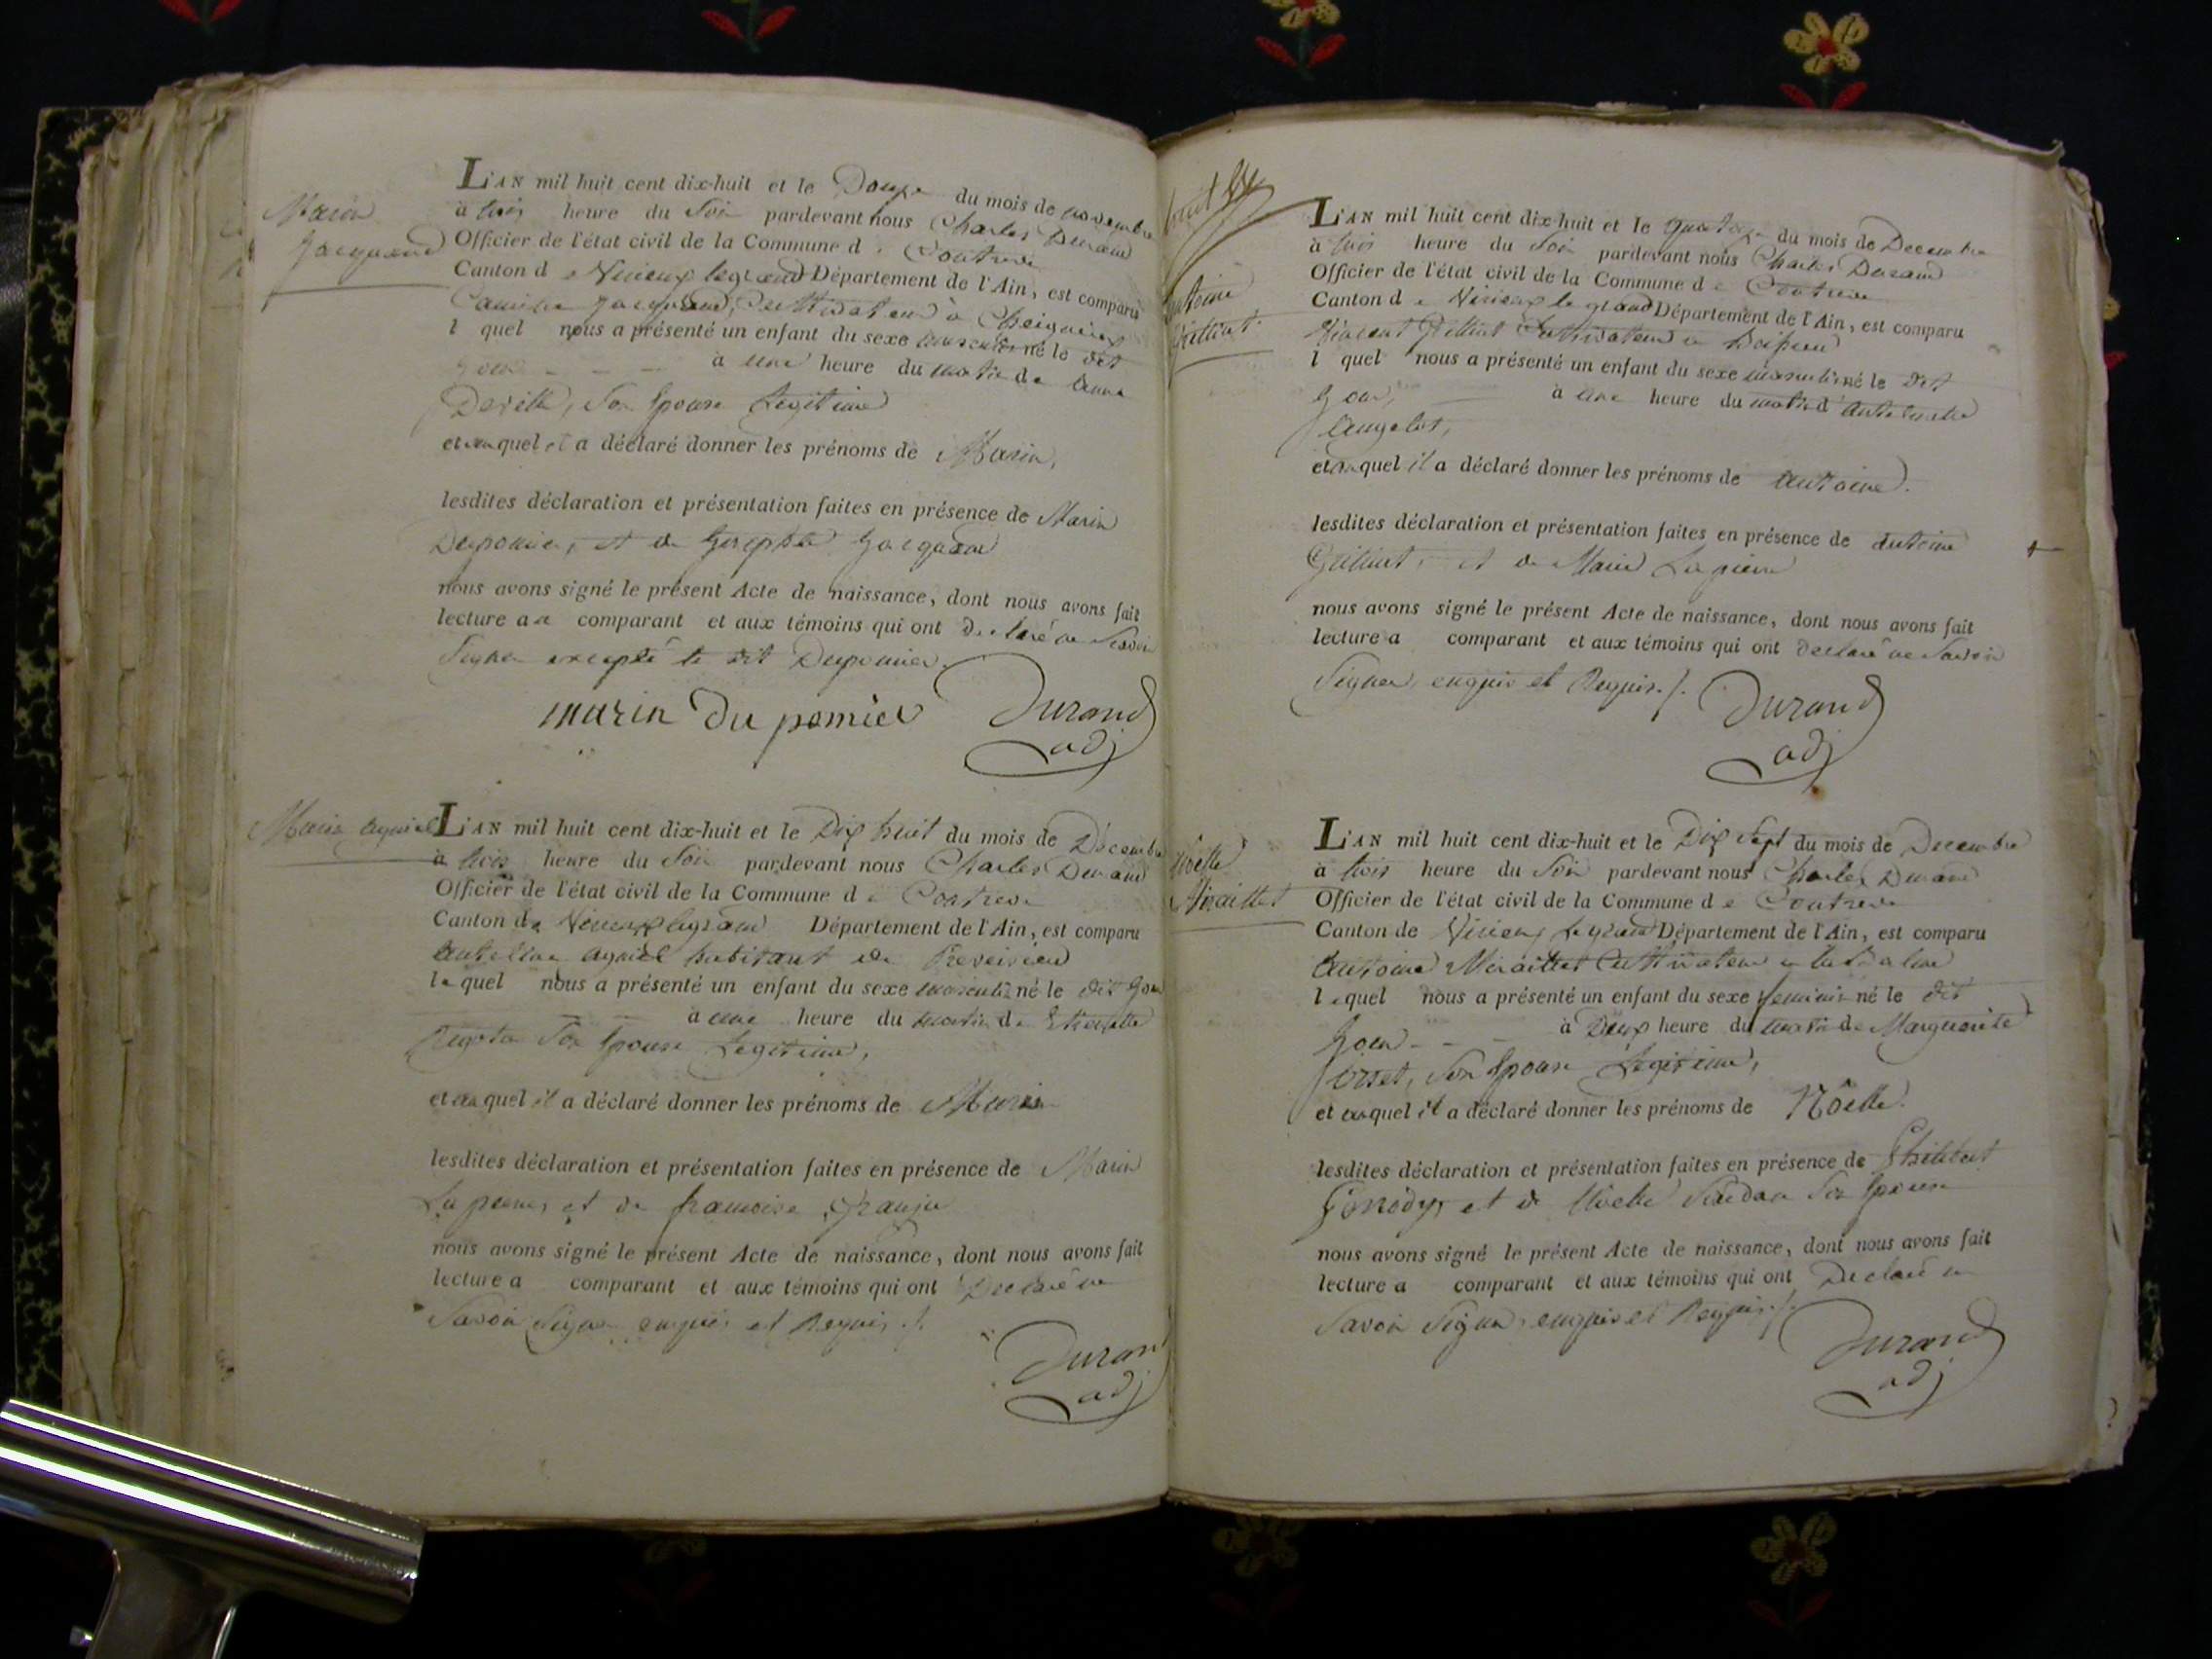 Marin
Jacquand
L'AN mil huit cent dix-huit et le Douze du mois de novembre
à trois heure du Soir pardevant nous Charles Durand
Officier de l'état civil de la Commune de Contrevoz
Canton de Virieux legrand Département de l'Ain, est comparu
Jacquand, Cultivateur à Cheignieu
l quel nous a présenté un enfant du sexe masculin né le dit
Jour - - - à une heure du matin de
Deville, Son Epouse Legitime
et auquel il a déclaré donner les prénoms de Marin,
lesdites déclaration et présentation faites en présence de Marin
Dupomier, et de Joseph Jacquand
nous avons signé le présent Acte de naissance, dont nous avons fait
lecture au comparant et aux témoins qui ont declaré ne Savoir
Signer excepté le dit Dupomier.
marin Du pomier Durand
adj
L'AN mil huit cent dix-huit et le Dix huit du mois de Décembre
à trois heure du Soir pardevant nous Charles Durand
Officier de l'état civil de la Commune de Contrevoz
Canton de Virieux legrand Département de l'Ain, est comparu
habitant de
le quel nous a présenté un enfant du sexe masculin né le dit Jour
- - à une heure du matin de
Son Epouse Legitime,
et auquel il a déclaré donner les prénoms de
lesdites déclaration et présentation faites en présence de Marin
Lapierre, et de francoise
nous avons signé le présent Acte de naissance, dont nous avons fait
lecture a comparant et aux témoins qui ont Declaré ne
Savoir Signer enquis et Requis ./.
Durand
adj
Antoine
Grillot
L'AN mil huit cent dix-huit et le quatorze du mois de Decembre
à trois heure du Soir pardevant nous Charles Durand
Officier de l'état civil de la Commune de Contrevoz
Canton de Virieux le grand Département de l'Ain, est comparu
Cultivateur a
l quel nous a présenté un enfant du sexe masculin né le dit
Jour, à une heure du matin d'
et auquel il a déclaré donner les prénoms de Antoine.
lesdites déclaration et présentation faites en présence de Antoine
et de Lapierre
nous avons signé le présent Acte de naissance, dont nous avons fait
lecture a comparant et aux témoins qui ont declaré ne Savoir
Signer, enquis et Requis ./. Durand
adj
Noëlle
Miraillet
L'AN mil huit cent dix-huit et le Dix Sept du mois de Decembre
à trois heure du Soir pardevant nous Charles Durand
Officier de l'état civil de la Commune de Contrevoz
Canton de Virieux Legrand Département de l'Ain, est comparu
Antoine Miraillet Cultivateur a
le quel nous a présenté un enfant du sexe feminin né le dit
Jour - - - à Deux heure du matin de Marguerite
Son Epouse Legitime,
et auquel il a déclaré donner les prénoms de Nôelle.
lesdites déclaration et présentation faites en présence de Philibert
et de Noëlle Son Epouse
nous avons signé le présent Acte de naissance, dont nous avons fait
lecture a comparant et aux témoins qui ont Declaré ne
Savoir Signer enquis et Requis ./.
Durand
adj